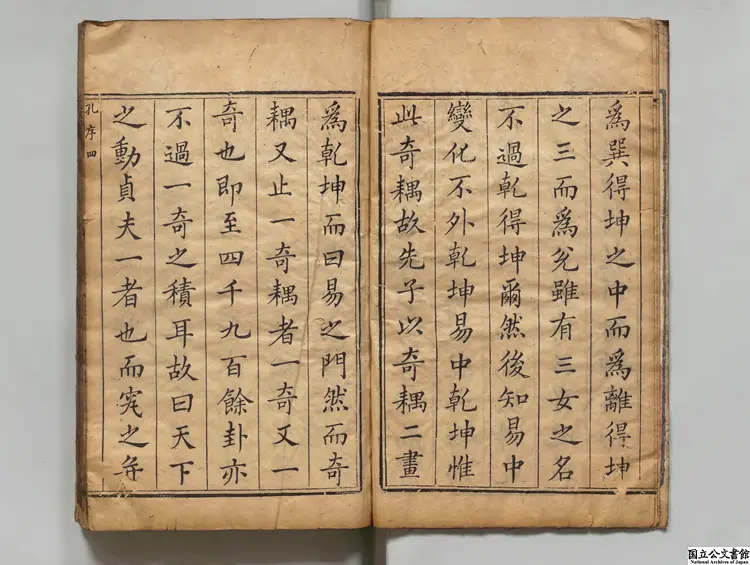 爲巽得坤之中而爲離得坤
之三而爲兌雖有三女之名
不過乾得坤爾然後知易中
變化不外乾坤易中乾坤惟
此奇耦故先子以奇耦二畫
爲乾坤而曰易之門然而奇
耦又止一奇耦者一奇又一
奇也即至四千九百餘卦亦
不過一奇之積耳故曰天下
之動貞夫一者也而究之弁
孔序四
国立公文書館
National Archives of Japan